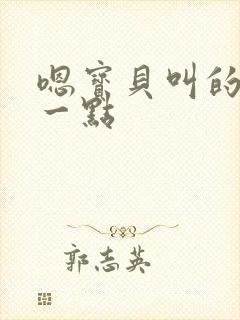 嗯寶貝叫的
一點
郭志英